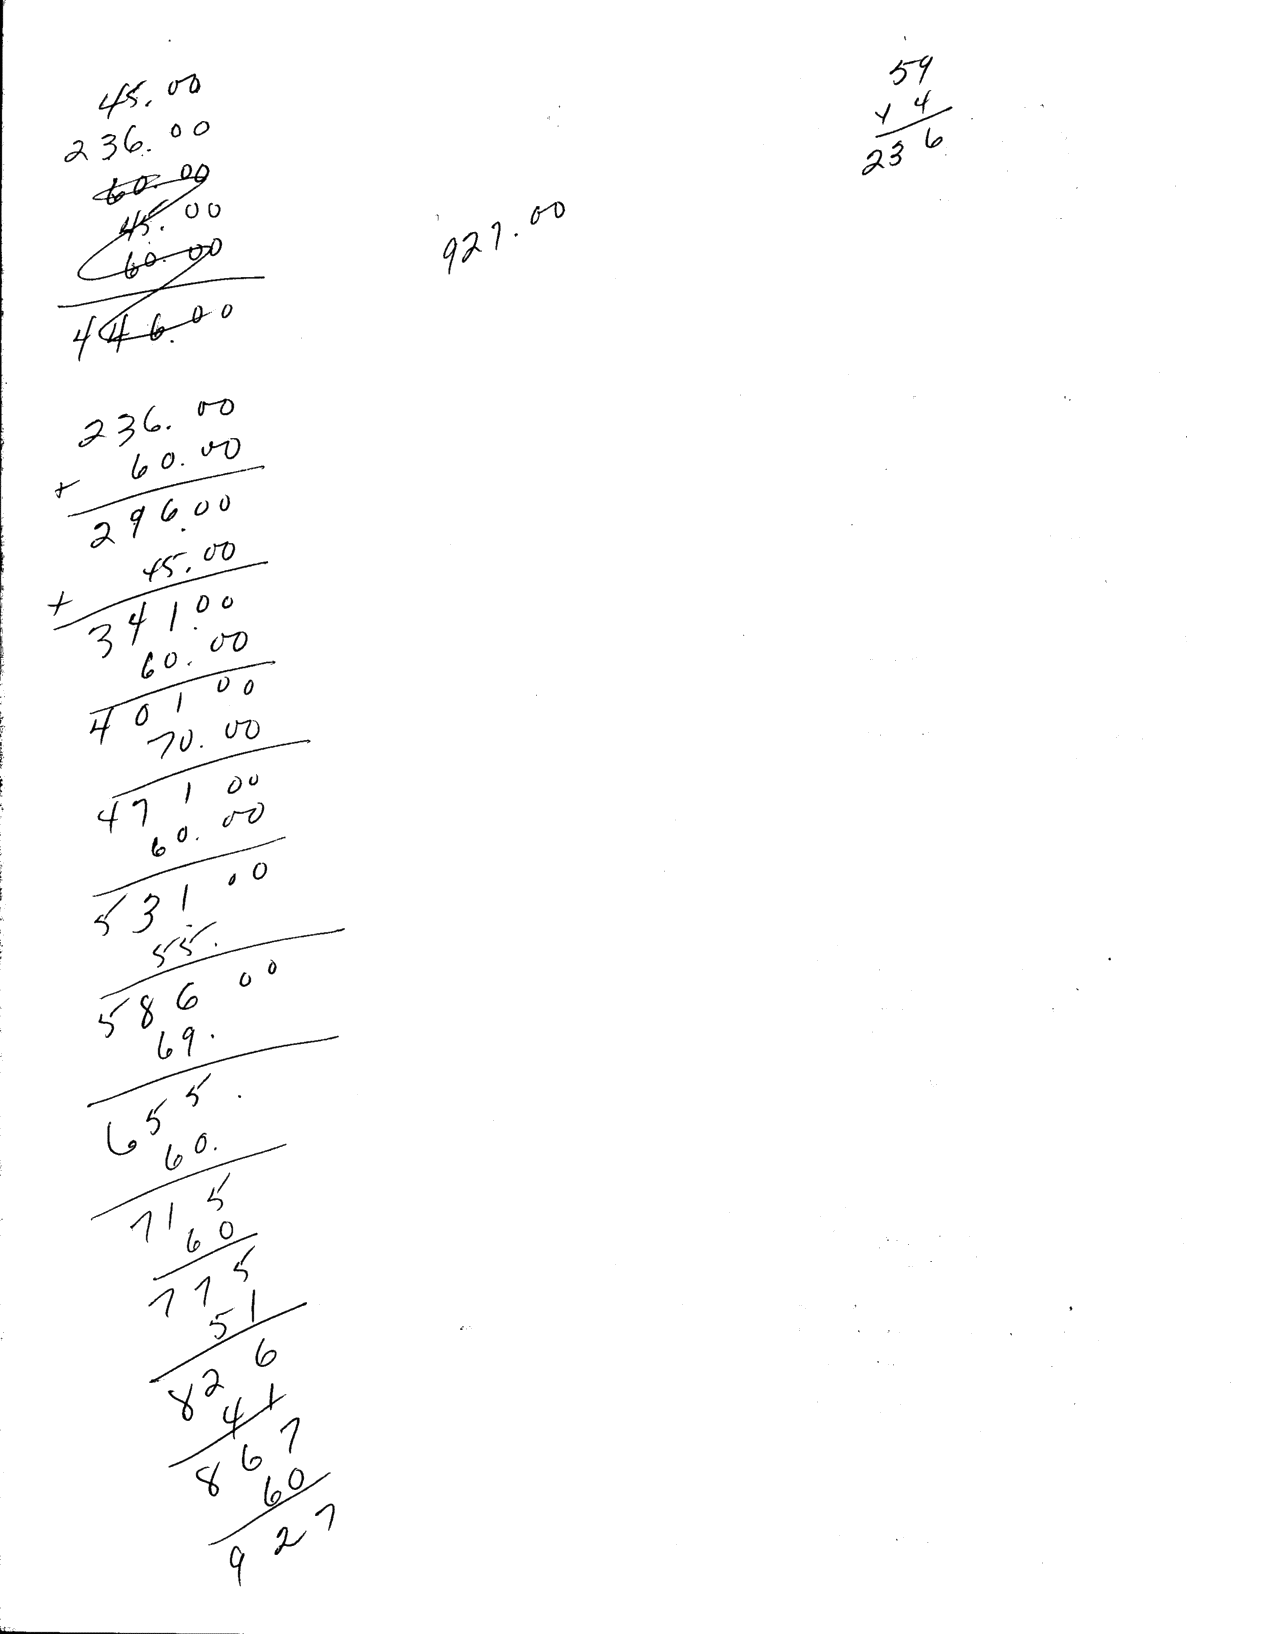 45.00
236.00
60.00
45.00
60.00
446.00
236.00
+ 60.00
296.00
+ 45.00
341.00
60.00
401 00
70.00
471 00
60.00
531 00
55.
586 00
69.
655.
60.
715
60
775
51
826
41
867
60
927
927.00
59
x 4
236